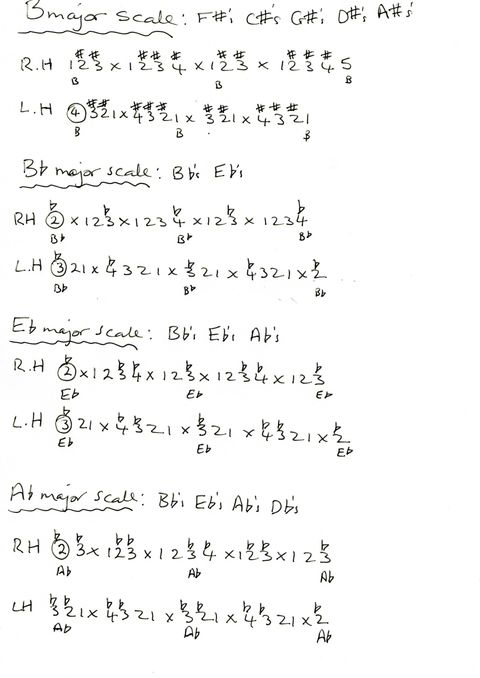 B major scale: F#'s C#'s G#'s D#'s A#'s
# # # # # # # # # #
R.H 1 2 3 x 1 2 3 4 x 1 2 3 x 1 2 3 4 5
B B B
# # # # # # # # # #
L.H 4 3 2 1 x 4 3 2 1 x 3 2 1 x 4 3 2 1
B B B
Bb major scale: Bb's Eb's
b b b b b
RH 2 x 1 2 3 x 1 2 3 4 x 1 2 3 x 1 2 3 4
Bb Bb Bb
b b b b b
L.H 3 2 1 x 4 3 2 1 x 3 2 1 x 4 3 2 1 x 2
Bb Bb Bb
Eb major scale: Bb's Eb's Ab's
b b b b b b b
R.H 2 x 1 2 3 4 x 1 2 3 x 1 2 3 4 x 1 2 3
Eb Eb Eb
b b b b b b b
L.H 3 2 1 x 4 3 2 1 x 3 2 1 x 4 3 2 1 x 2
Eb Eb Eb
Ab major scale: Bb's Eb's Ab's Db's
b b b b b b b b
RH 2 3 x 1 2 3 x 1 2 3 4 x 1 2 3 x 1 2 3
Ab Ab Ab
b b b b b b b b b
LH 3 2 1 x 4 3 2 1 x 3 2 1 x 4 3 2 1 x 2
Ab Ab Ab